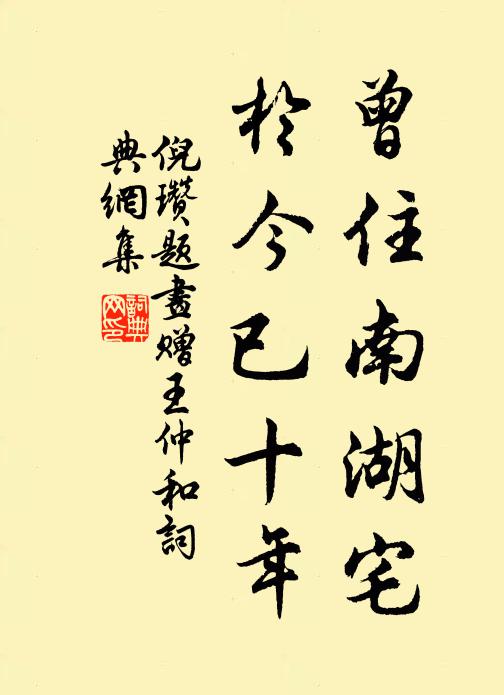 曾住南湖宅
於今已十年
倪瓚题畫赠王仲和詞
典網集
詞典网印